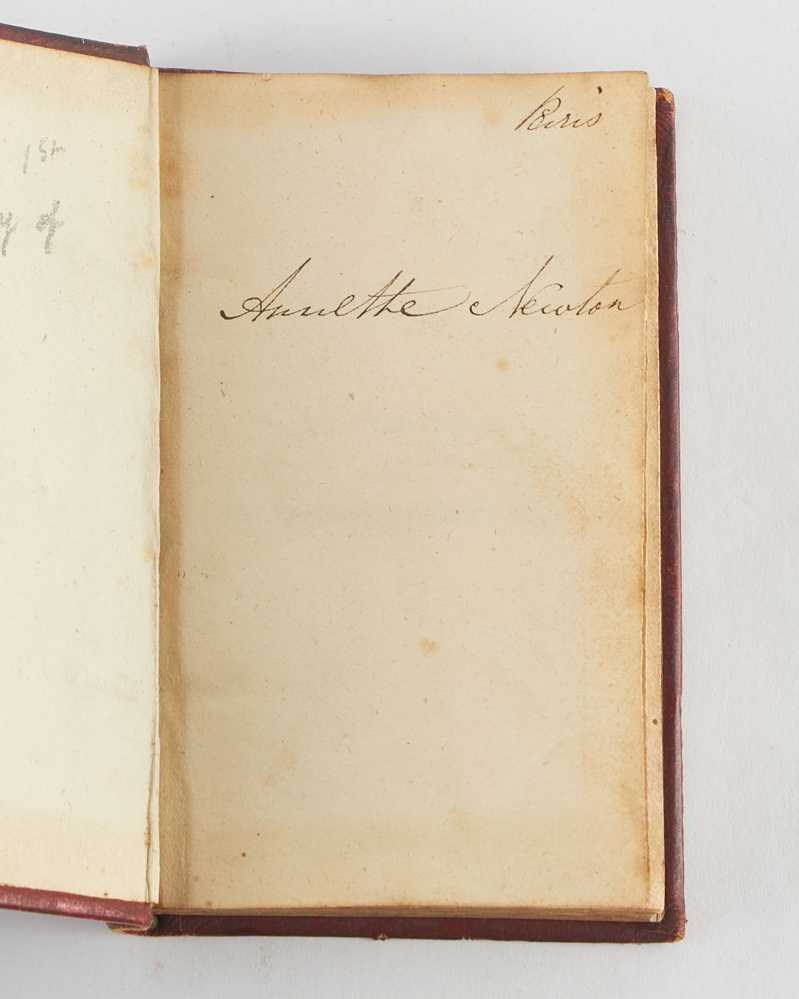 1st
of
Paris
Annette Newton